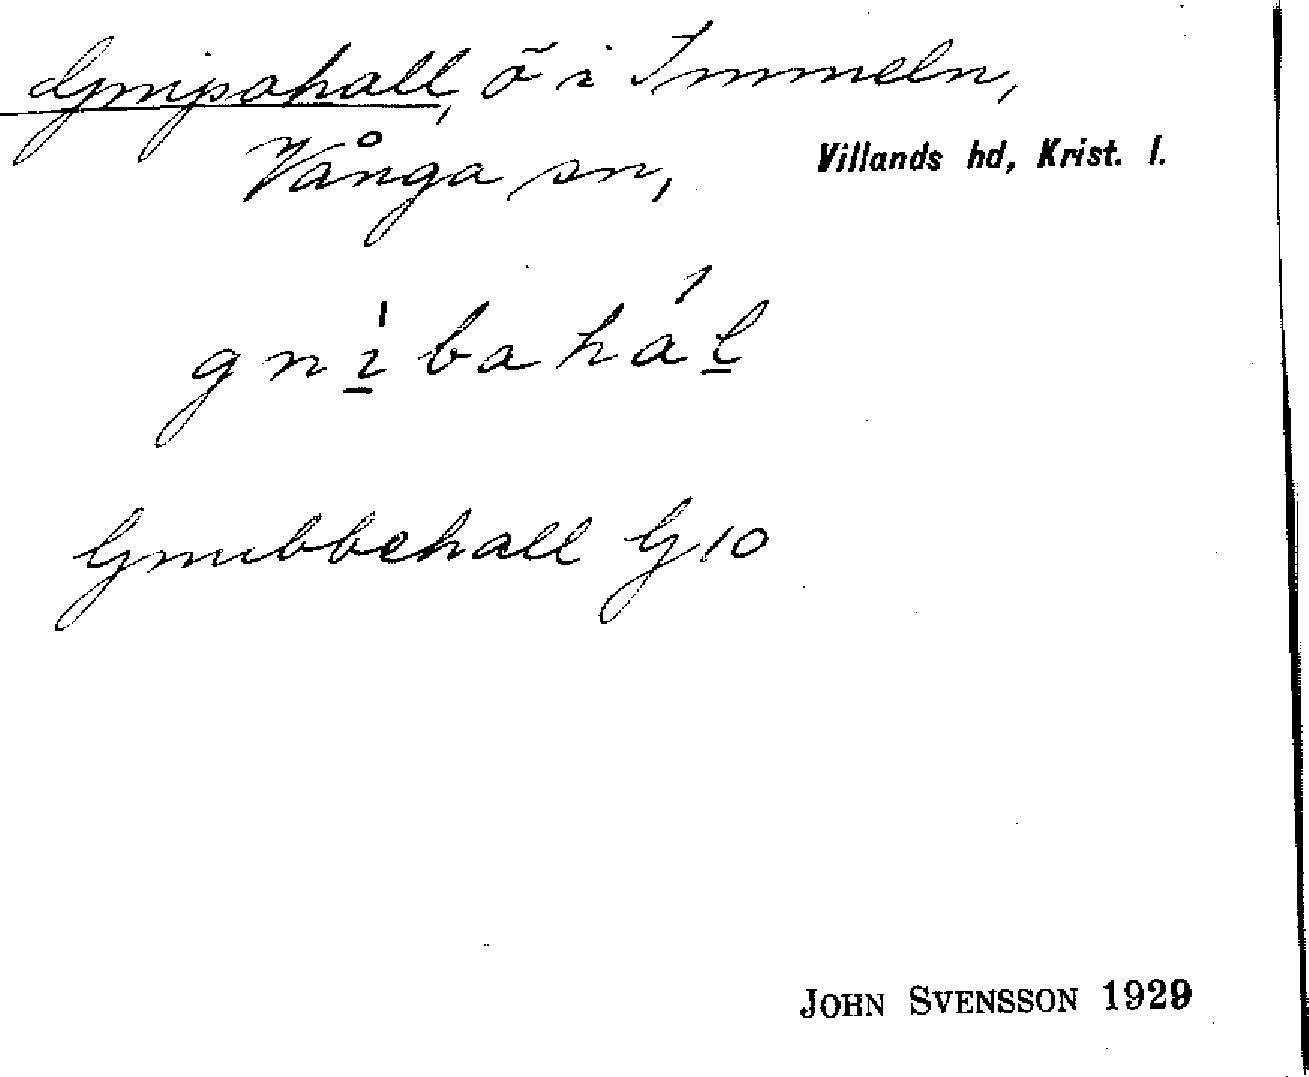 Gnipahall, ö i Immeln,
Vånga sn, Villands hd, Krist. l.
gnìbahál
Gnibbehall G10
JOHN SVENSSON 1929